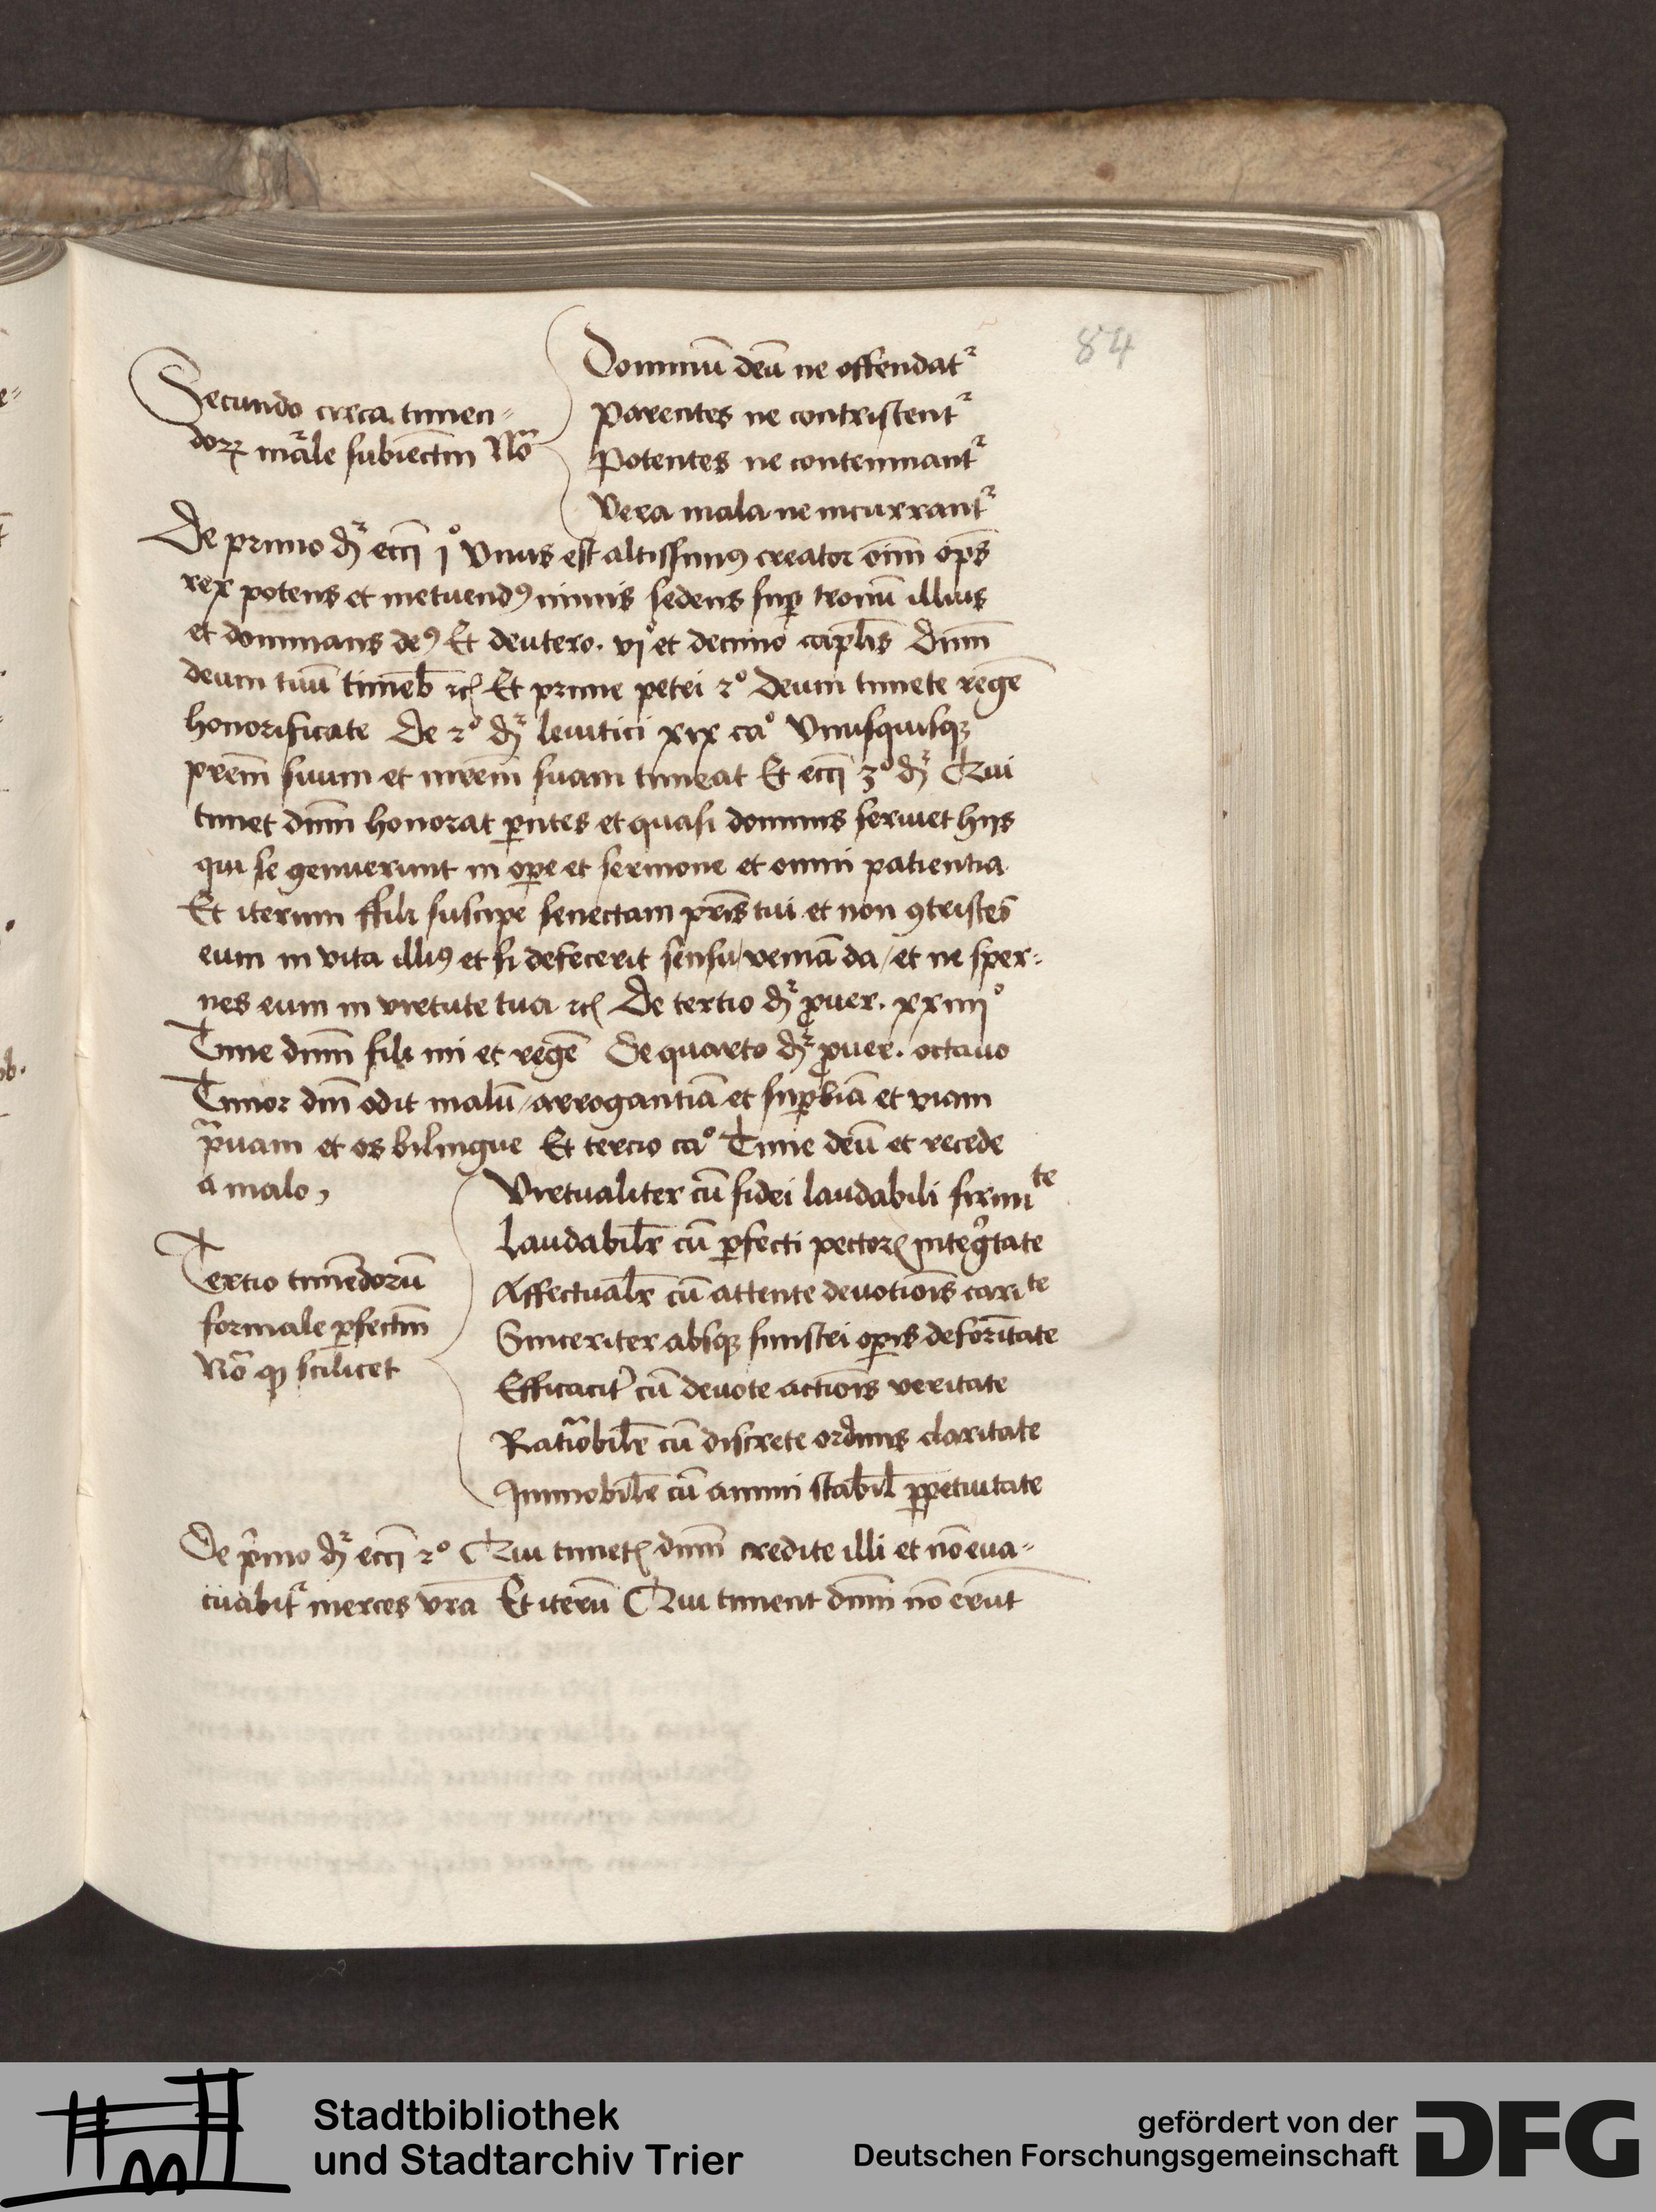 84
Secundo circa timen-
doꝝ māle subiectm Nō
Dominū deū ne offendatᷣ
Parentes ne contristentᷣ
Potentes ne contemnantᷣ
Vera mala ne incurrantᷣ
De primo dꝛ ecci jº Vnus est altissimꝰ creator oīm op̄s
rex potens et metuendꝰ nimis sedens suꝑ tronū illius
et dominans deꝰ Et deutero. vjº et decimo capl̄is Dn̄m
deum tuū timeb̄ ꝛcꝭ Et prime petri 2º Deum timete regē
honorificate De 2º dꝛ leuitici xix caº Vnusquisqꝫ
prēm suum et mrēm suam timeat Et ecci 3º dꝛ Qui
timet dn̄m honorat ꝑntes et quasi dominis seruiet hijs
qui se genuerunt in oꝑe et sermone et omni patientia
Et iterum ffili suscipe senectam pr̄is tui et non ꝯtristes
eum in vita illiꝰ et si defecerit sensu / veniā da / et ne sper-
nes eum in virtute tua ꝛcꝭ De tertio dꝛ ꝓuer. xxiiijº
Time dn̄m fili mi et regē De quarto dꝛ ꝓuer. octauo
Timor dn̄i odit malū / arrogantiā et suꝑbiā et viam
prͣuam et os bilingue Et tercio caº Time deū et recede
a malo,
Tertio timēdorū
formale ꝑfectm
Nō ꝙ scilicet
Virtualiter cū fidei laudabili firmiᵗᵉ
Laudabilr̄ cū ꝑfecti pectorꝭ integͥtate
Affectualr̄ cū attente deuotiōis cariᵗᵉ
Sinceriter absqꝫ sinistri oꝑis deformitate
Efficacitͬ cū deuote actiōis veritate
Ratiōbilr̄ cū discrete ordinis claritate
Immobilr̄ cū animi stabil̄ ꝑpetuitate
De pͥmo dꝛ ecci 2º Qui timetꝭ dn̄m credite illi et nō eua-
cuabitᷣ merces vrā Et iterū Qui timent dn̄m nō erūt
Stadtbibliothek
und Stadtarchiv Trier
gefördert von der
Deutschen Forschungsgemeinschaft
DFG